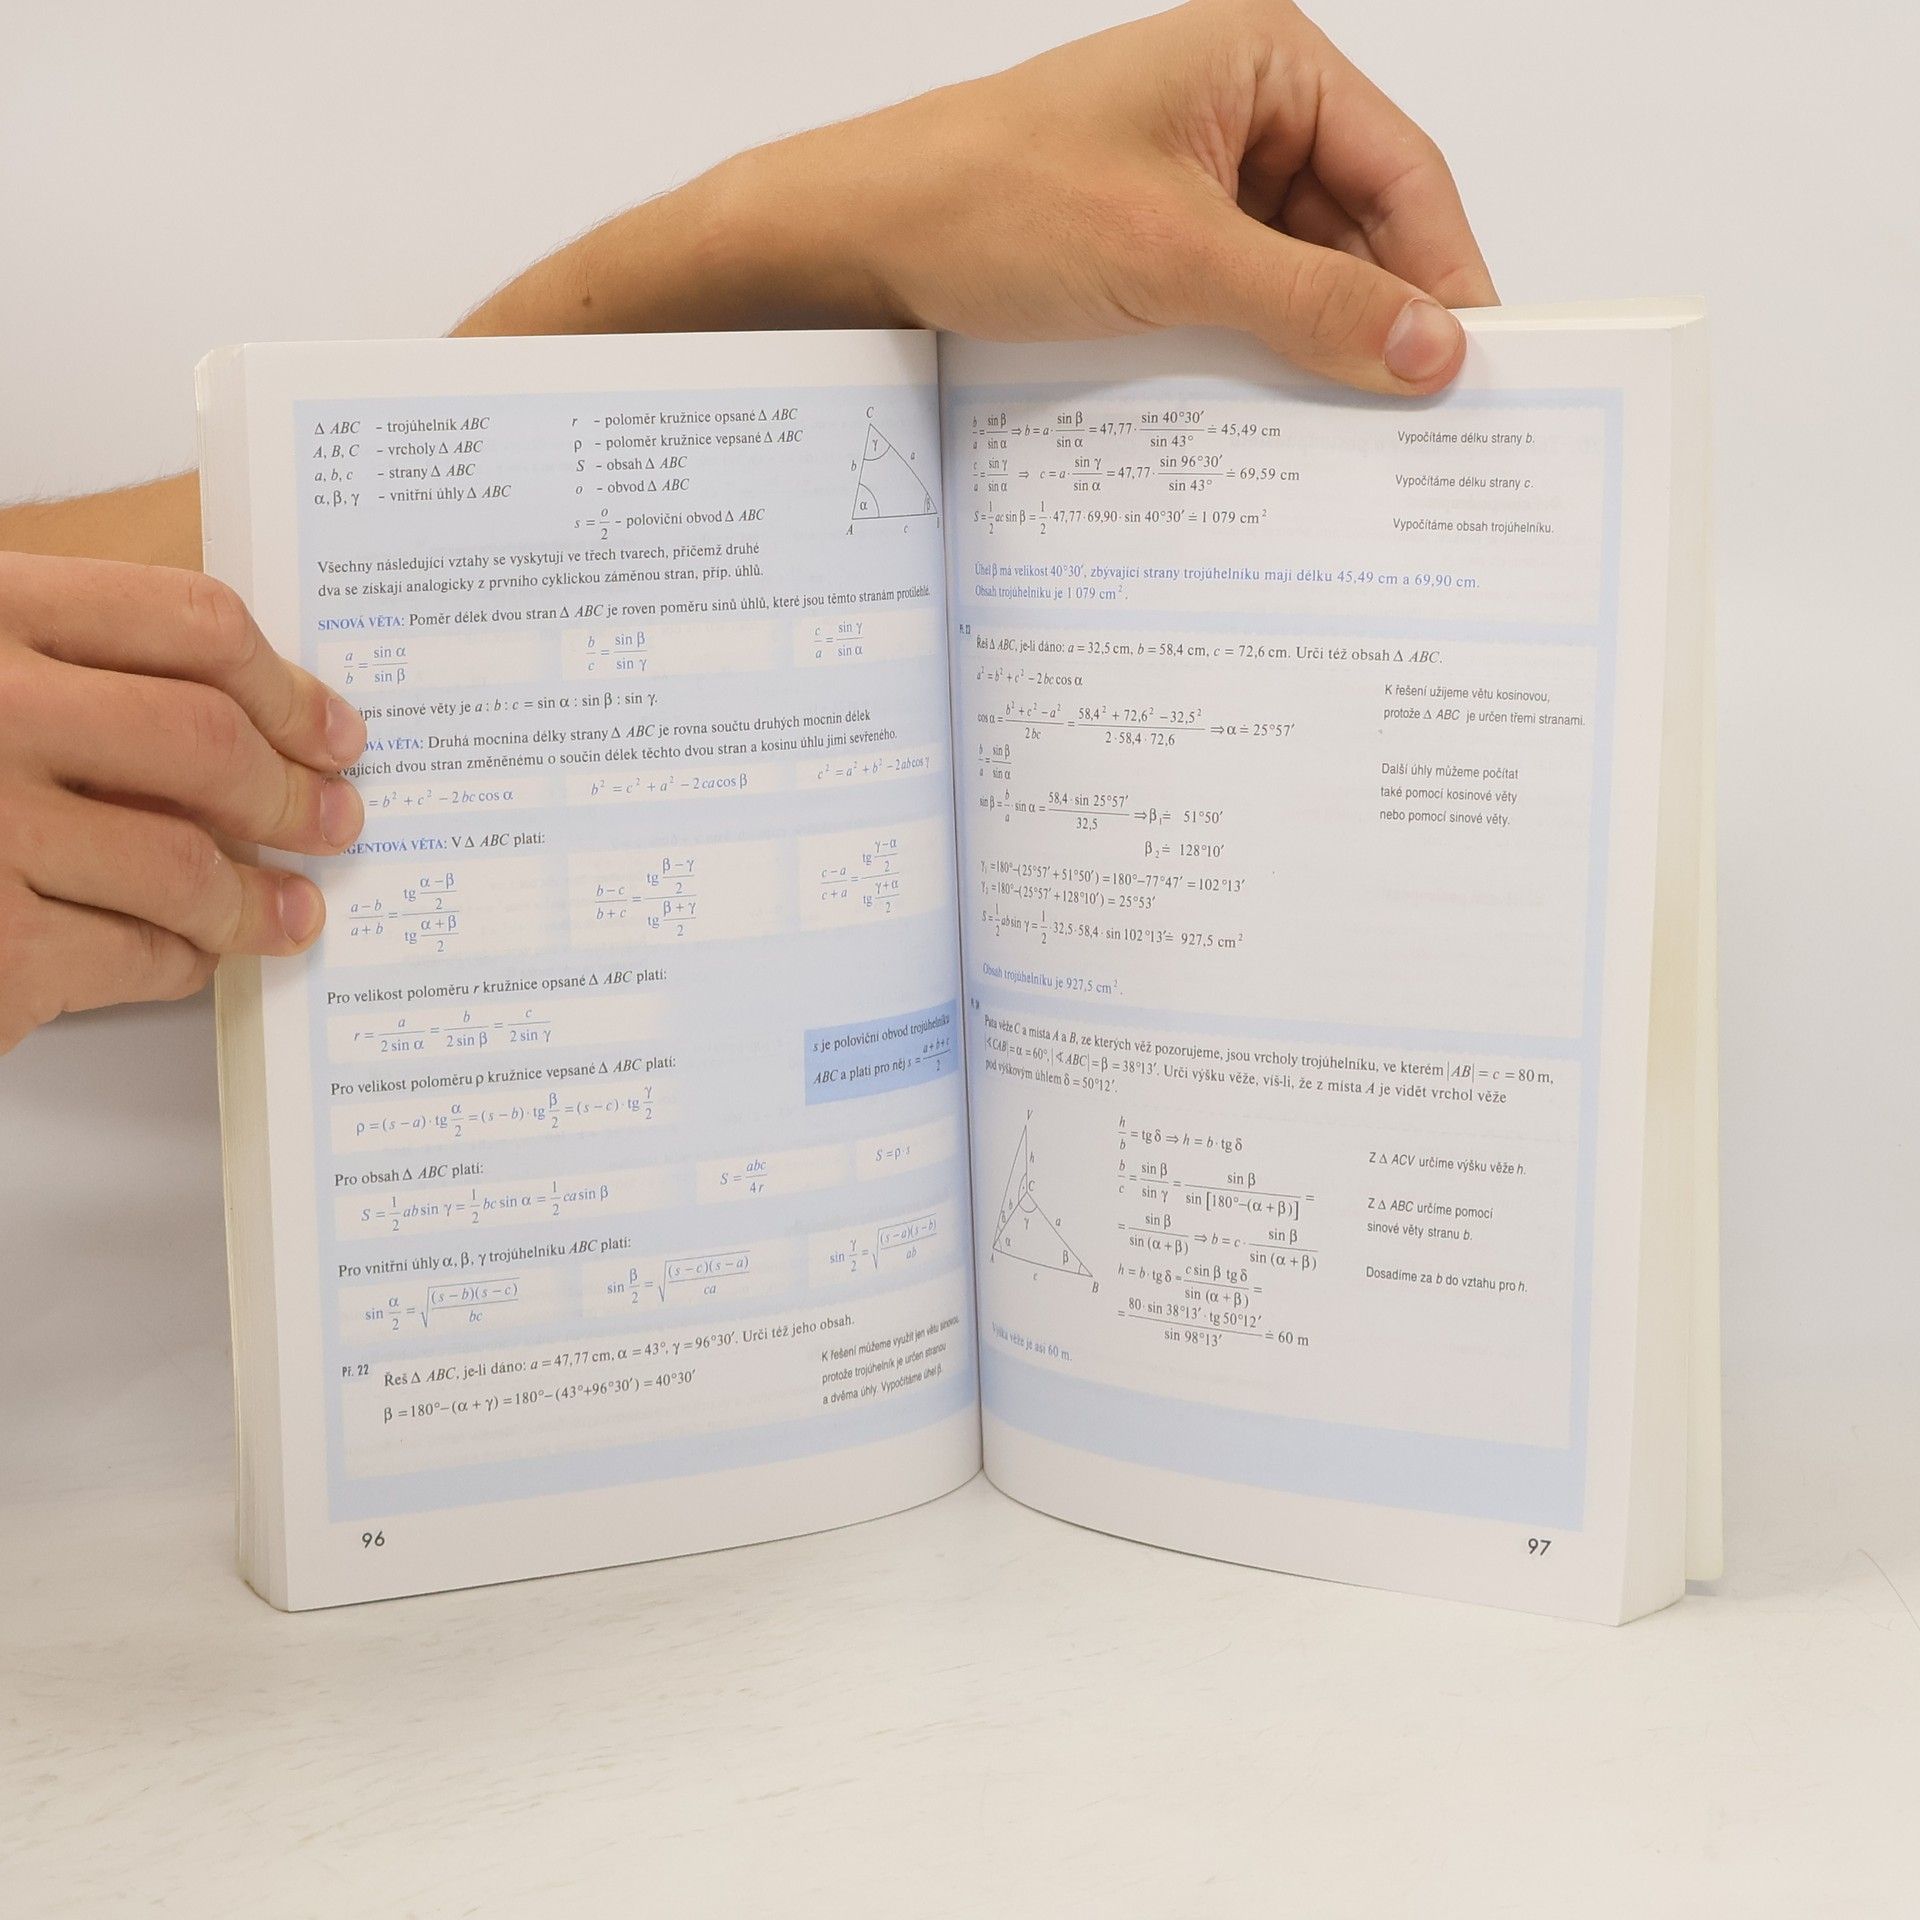 Δ ABC – trojúhelník ABC
A, B, C – vrcholy Δ ABC
a, b, c – strany Δ ABC
α, β, γ – vnitřní úhly Δ ABC
r – poloměr kružnice opsané Δ ABC
ρ – poloměr kružnice vepsané Δ ABC
S – obsah Δ ABC
o – obvod Δ ABC
s = o/2 – poloviční obvod Δ ABC
C
γ
b
a
α
β
A
c
Všechny následující vztahy se vyskytují ve třech tvarech, přičemž druhé
dva se získají analogicky z prvního cyklickou záměnou stran, příp. úhlů.
SINOVÁ VĚTA: Poměr délek dvou stran Δ ABC je roven poměru sinů úhlů, které jsou těmto stranám protilehlé.
a/b = sin α/sin β
b/c = sin β/sin γ
c/a = sin γ/sin α
ápis sinové věty je a : b : c = sin α : sin β : sin γ.
OVÁ VĚTA: Druhá mocnina délky strany Δ ABC je rovna součtu druhých mocnin délek
vajících dvou stran změněnému o součin délek těchto dvou stran a kosinu úhlu jimi sevřeného.
= b² + c² – 2bc cos α
b² = c² + a² – 2ca cos β
c² = a² + b² – 2ab cos γ
GENTOVÁ VĚTA: V Δ ABC platí:
(a – b)/(a + b) = (tg (α – β)/2)/(tg (α + β)/2)
(b – c)/(b + c) = (tg (β – γ)/2)/(tg (β + γ)/2)
(c – a)/(c + a) = (tg (γ – α)/2)/(tg (γ + α)/2)
Pro velikost poloměru r kružnice opsané Δ ABC platí:
r = a/(2 sin α) = b/(2 sin β) = c/(2 sin γ)
s je poloviční obvod trojúhelníku
ABC a platí pro něj s = (a + b + c)/2
Pro velikost poloměru ρ kružnice vepsané Δ ABC platí:
ρ = (s – a) · tg α/2 = (s – b) · tg β/2 = (s – c) · tg γ/2
Pro obsah Δ ABC platí:
S = 1/2 ab sin γ = 1/2 bc sin α = 1/2 ca sin β
S = abc/4r
S = ρ · s
Pro vnitřní úhly α, β, γ trojúhelníku ABC platí:
sin α/2 = √((s – b)(s – c)/bc)
sin β/2 = √((s – c)(s – a)/ca)
sin γ/2 = √((s – a)(s – b)/ab)
Př. 22
Řeš Δ ABC, je-li dáno: a = 47,77 cm, α = 43°, γ = 96°30′. Urči též jeho obsah.
β = 180° – (α + γ) = 180° – (43° + 96°30′) = 40°30′
K řešení můžeme využít jen větu sinovou,
protože trojúhelník je určen stranou
a dvěma úhly. Vypočítáme úhel β.
96
b/a = sin β/sin α ⇒ b = a · sin β/sin α = 47,77 · sin 40°30′/sin 43° ≐ 45,49 cm
Vypočítáme délku strany b.
c/a = sin γ/sin α ⇒ c = a · sin γ/sin α = 47,77 · sin 96°30′/sin 43° ≐ 69,59 cm
Vypočítáme délku strany c.
S = 1/2 ac sin β = 1/2 · 47,77 · 69,90 · sin 40°30′ ≐ 1 079 cm²
Vypočítáme obsah trojúhelníku.
Úhel β má velikost 40°30′, zbývající strany trojúhelníku mají délku 45,49 cm a 69,90 cm.
Obsah trojúhelníku je 1 079 cm².
Řeš Δ ABC, je-li dáno: a = 32,5 cm, b = 58,4 cm, c = 72,6 cm. Urči též obsah Δ ABC.
a² = b² + c² – 2bc cos α
K řešení užijeme větu kosinovou,
protože Δ ABC je určen třemi stranami.
cos α = (b² + c² – a²)/2bc = (58,4² + 72,6² – 32,5²)/(2 · 58,4 · 72,6) ⇒ α ≐ 25°57′
b/a = sin β/sin α
Další úhly můžeme počítat
také pomocí kosinové věty
nebo pomocí sinové věty.
sin β = b/a · sin α = (58,4 · sin 25°57′)/32,5 ⇒ β₁ ≐ 51°50′
β₂ ≐ 128°10′
γ₁ = 180° – (25°57′ + 51°50′) = 180° – 77°47′ = 102°13′
γ₂ = 180° – (25°57′ + 128°10′) = 25°53′
S = 1/2 ab sin γ = 1/2 · 32,5 · 58,4 · sin 102°13′ ≐ 927,5 cm²
Obsah trojúhelníku je 927,5 cm².
Pata věže C a místa A a B, ze kterých věž pozorujeme, jsou vrcholy trojúhelníku, ve kterém |AB| = c = 80 m,
|∢ CAB| = α = 60°, |∢ ABC| = β = 38°13′. Urči výšku věže, víš-li, že z místa A je vidět vrchol věže
pod výškovým úhlem δ = 50°12′.
V
h
C
b
γ
a
δ
α
β
A
c
B
h/b = tg δ ⇒ h = b · tg δ
Z Δ ACV určíme výšku věže h.
b/c = sin β/sin γ = sin β/sin [180° – (α + β)] =
Z Δ ABC určíme pomocí
sinové věty stranu b.
= sin β/sin (α + β) ⇒ b = c · sin β/sin (α + β)
h = b · tg δ = c sin β tg δ/sin (α + β) =
Dosadíme za b do vztahu pro h.
= 80 · sin 38°13′ · tg 50°12′/sin 98°13′ ≐ 60 m
Výška věže je asi 60 m.
97